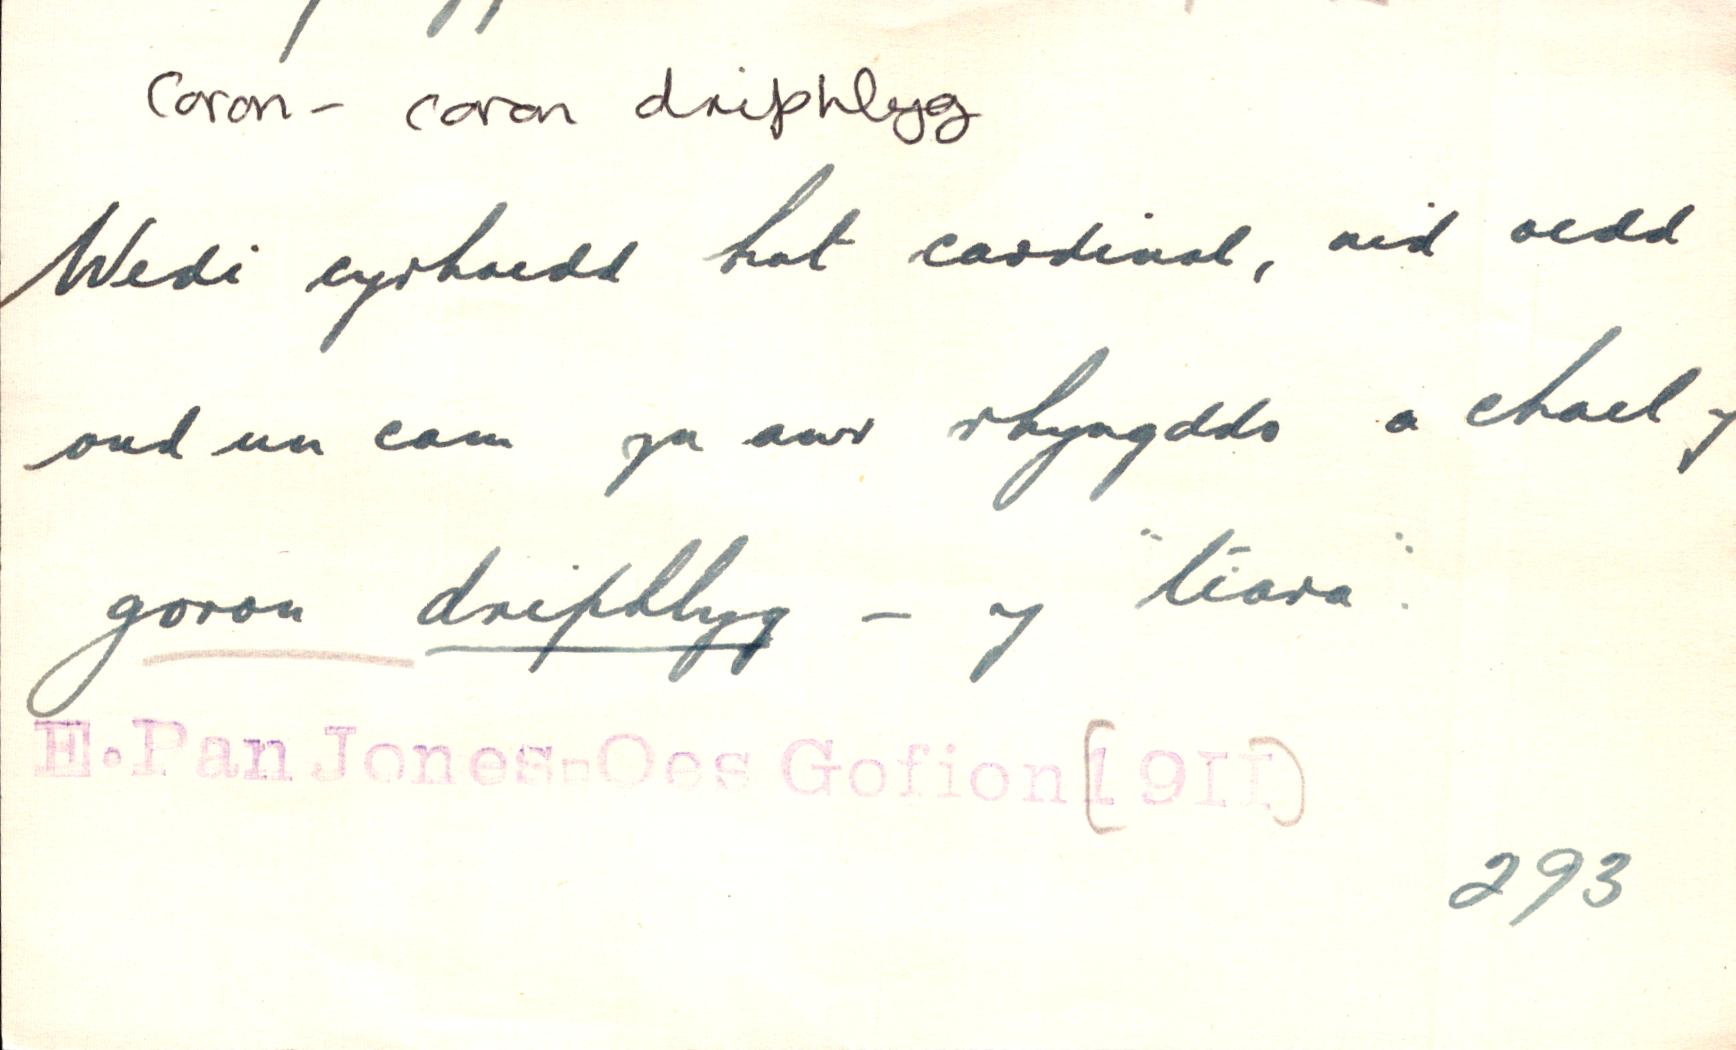 Coron - coron driphlyg
Wedi cyrhaedd hat cardinal, nid oedd
ond un cam yn awr rhyngddo a chael y
goron driphlyg - y "tiara".
E. Pan Jones-Oes Gofion (1911)
293